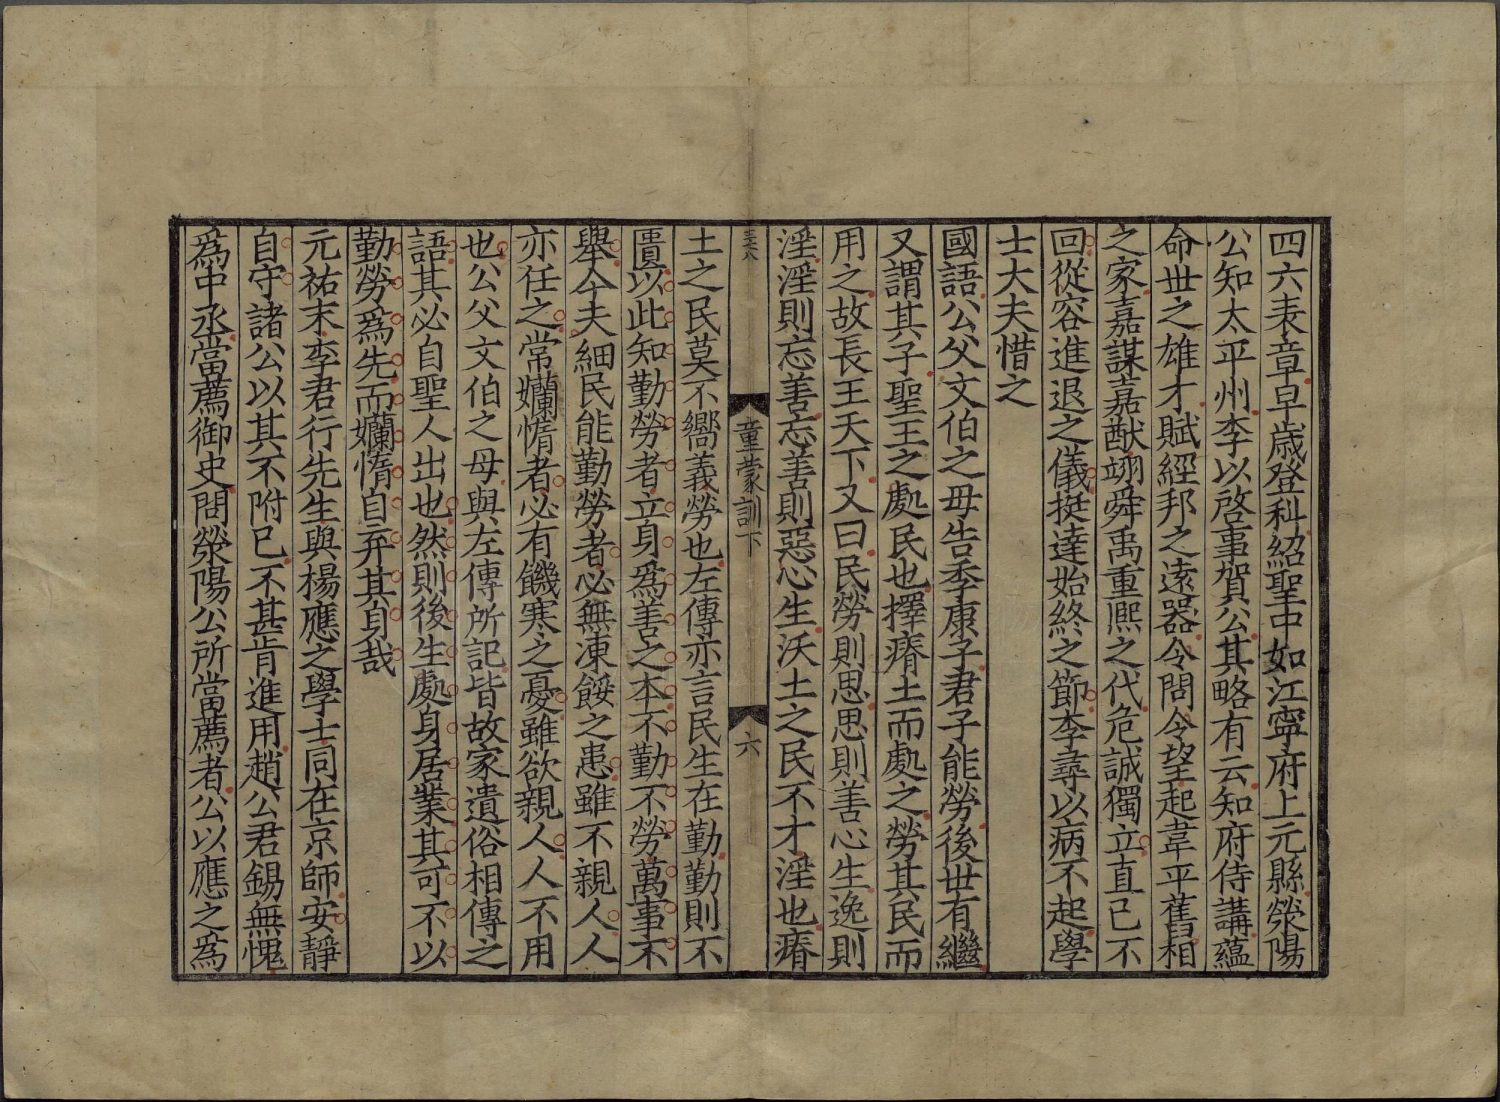 四六表章早歳登科紹聖中如江寧府上元縣滎陽
公知太平州李以啓事賀公其略有云知府侍講蘊
命世之雄才賦經邦之遠器令問令望起韋平舊相
之家嘉謀嘉猷翊舜禹重熙之代危誠獨立直已不
回從容進退之儀挺達始終之節李尋以病不起學
士大夫惜之
國語公父文伯之母告季康子君子能勞後世有繼
又謂其子聖王之處民也擇瘠土而處之勞其民而
用之故長王天下又曰民勞則思思則善心生逸則
淫淫則忘善忘善則惡心生沃土之民不才淫也瘠
三六八
童蒙訓下
六
土之民莫不嚮義勞也左傳亦言民生在勤勤則不
匱以此知勤勞者立身爲善之本不勤不勞萬事不
舉今夫細民能勤勞者必無凍餒之患雖不親人人
亦任之常嬾惰者必有饑寒之憂雖欲親人人不用
也公父文伯之母與左傳所記皆故家遺俗相傳之
語其必自聖人出也然則後生處身居業其可不以
勤勞爲先而嬾惰自弃其身哉
元祐末李君行先生與楊應之學士同在京師安靜
自守諸公以其不附已不甚肯進用趙公君錫無愧
爲中丞當薦御史問滎陽公所當薦者公以應之爲